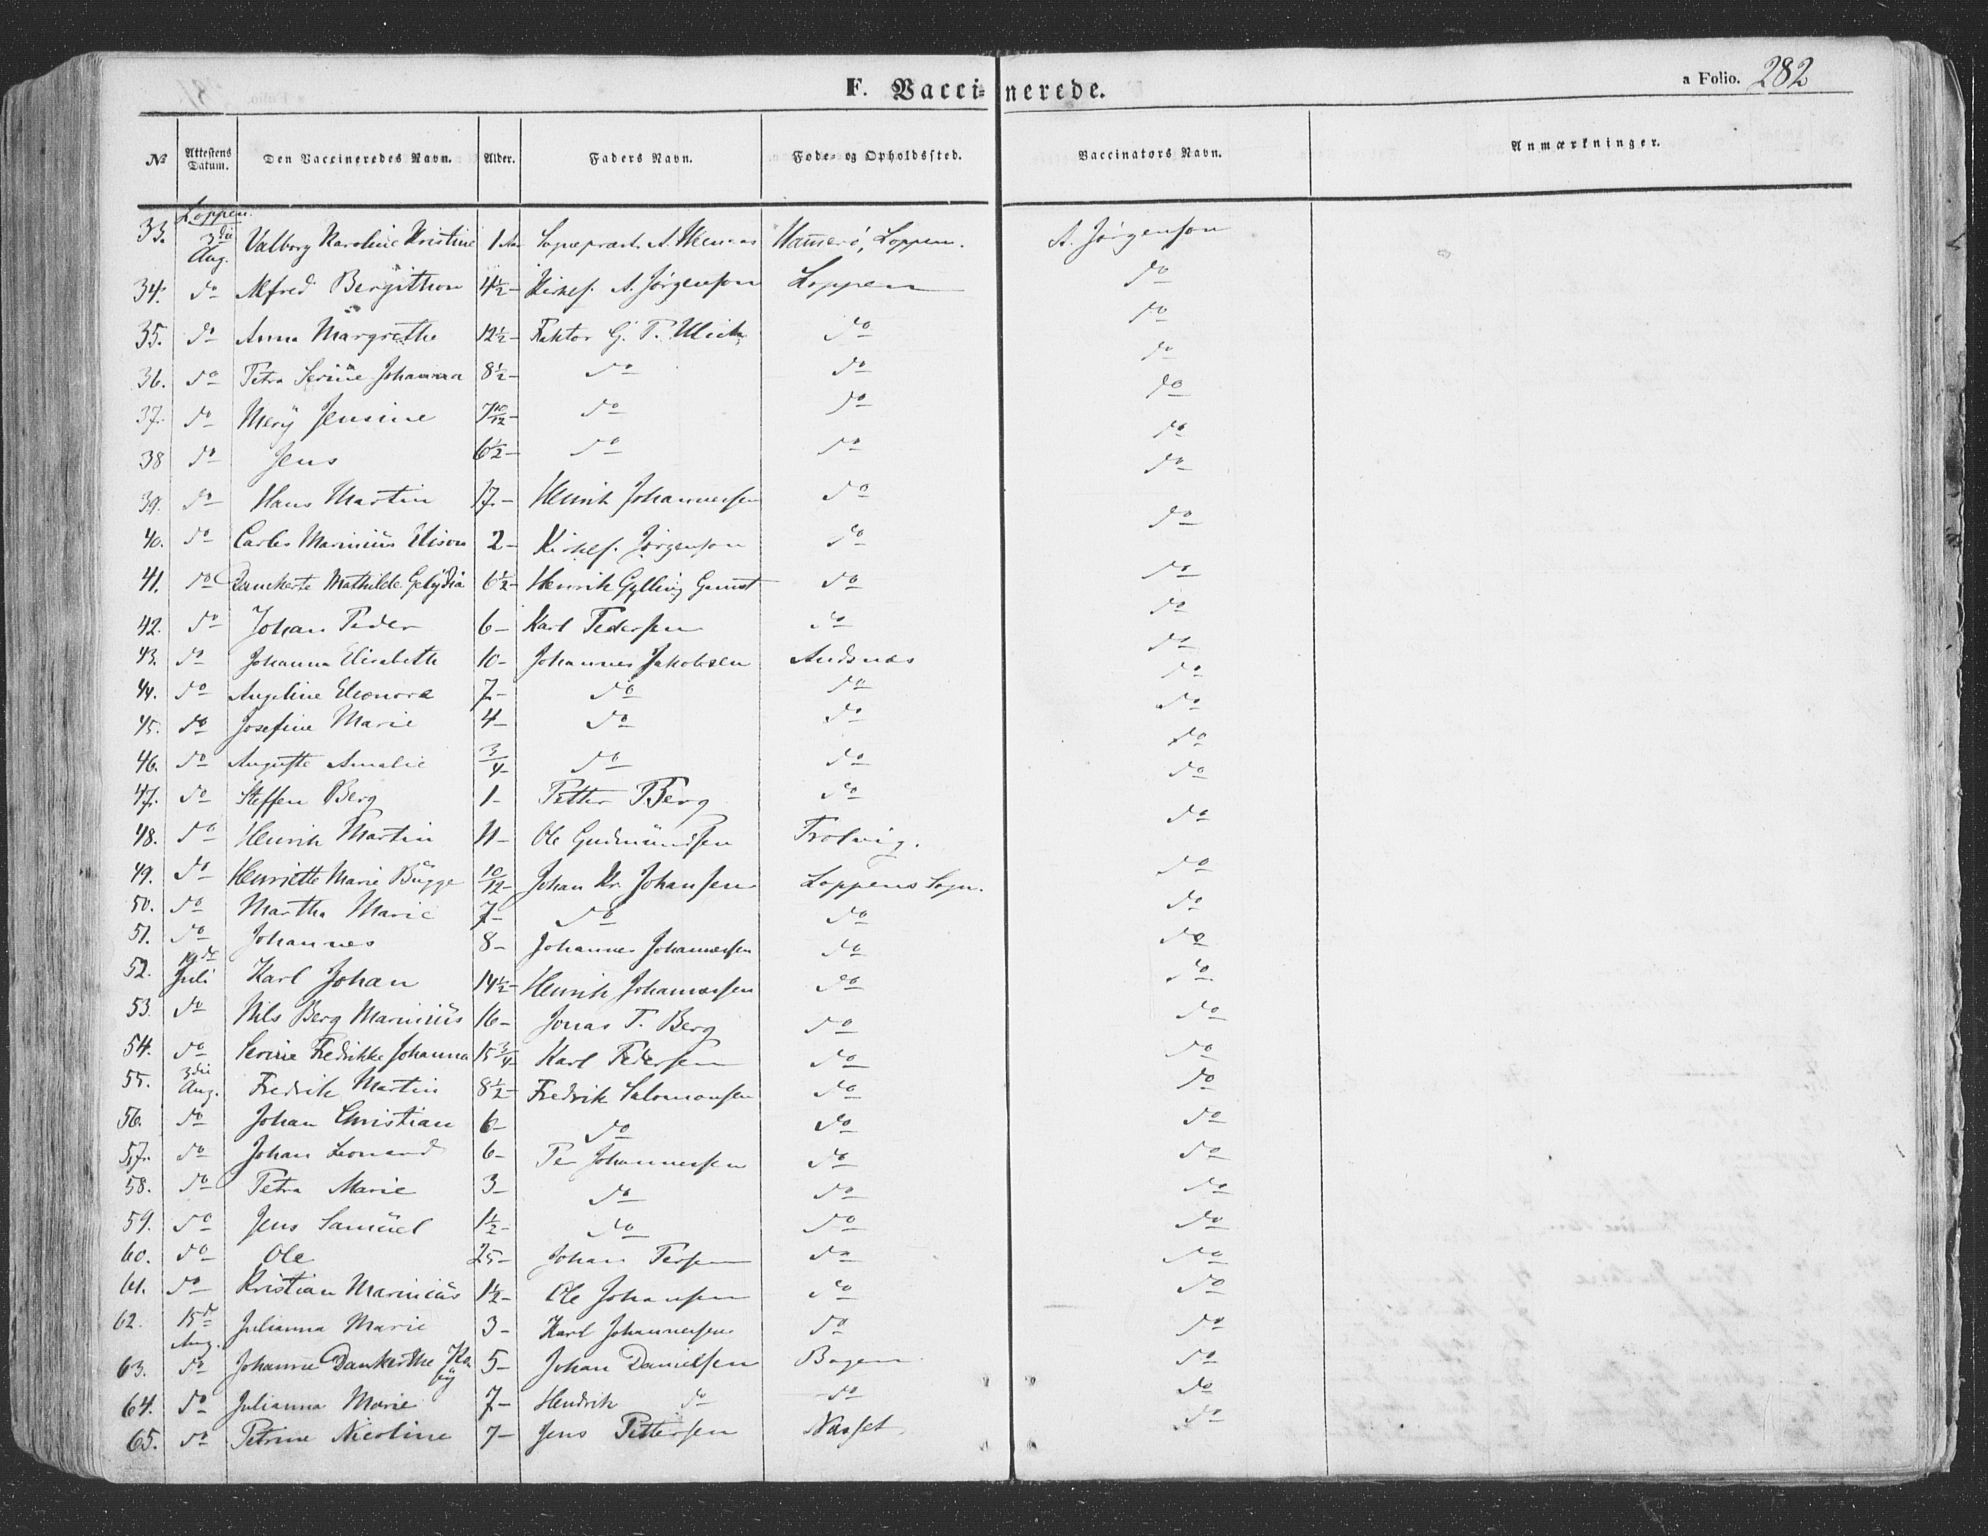 F. Vaccinerede.
a Folio. 282
No Attestens Datum. Den Vaccineredes Navn. Alder. Faders Navn. Føde- og Opholdssted. Vaccinators Navn. Anmærkninger.
Loppen.
33. 3die Aug. Valborg Karoline Kristine 1 Aar Sognepræst A. Hamerø, Loppen. A. Jørgensen
34. do Alfred Bergithon 4½ Kirkes. A. Jørgensen Loppen do
35. do Anna Margrethe 12½ Faktor G. P. Ulich do do
36. do Petra Serine Johanna 8½ do do do
37. do Mery Jensine 7 10/12 do do do
38 do Jens 6½ do do do
39. do Hans Martin 17 Henrik Johannessen do do
40. do Carles Marinius Elison 2 Kirkes. Jørgensen do do
41. do Mathilde 6½ Henrik Gylling do do
42. do Johan Peder 6 Karl Pedersen do do
43. do Johanna Elisabeth 10 Johannes Jakobsen Andsnæs do
44. do Angeline Eleonora 7 do do do
45. do Josefine Marie 4 do do do
46. do Auguste Amalie 3/4 do do do
47. do Steffen Berg 1 Petter Berg do do
48. do Henrik Martin 11 Ole Gudmundsen Frolvig. do
49. do Henriette Marie Bügge 10/12 Johan Kr. Johansen Loppens Sogn. do
50. do Martha Marie 7 do do do
51. do Johannes 8 Johannes Johannessen do do
52. 19de Juli Karl Johan 14½ Henrik Johannessen do do
53. do Nils Berg Marinius 16 Jonas T. Berg do do
54. do Serine Fredrikke Johanna 15 3/4 Karl Pedersen do do
55. 3die Aug. Fredrik Martin 8½ Fredrik Salomonsen do do
56. do Johan Christian 6 do do do
57. do Johan Leonard 6 Per Johannessen do do
58. do Petra Marie 3 do do do
59. do Jens Samüel 1½ do do do
60. do Ole 25 Johan Persen do do
61. do Kristian Marinius 1½ Ole Johansen do do
62. 15de Aug. Julianna Marie 3 Karl Johannessen do do
63. do Johanne Dankerthe 5 Johan Danielsen Bogen do
64. do Julianna Marie 7 Hendrik do do do
65. do Petrine Nicoline 7 Jens Pettersen Næsset do